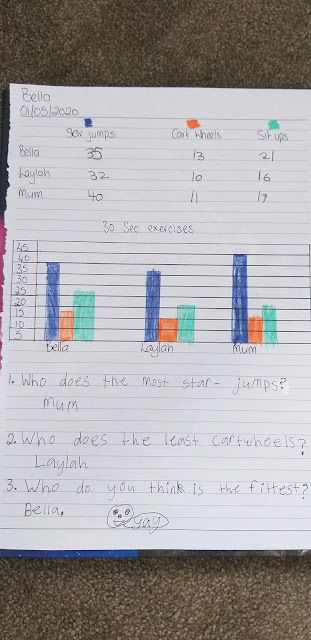 Bella
01/05/2020
Star jumps Cart wheels Sit ups
Bella 35 13 21
Laylah 32 10 16
Mum 40 11 17
30 Sec exercises
45
40
35
30
25
20
15
10
5
Bella Laylah Mum
1. Who does the most star- jumps?
Mum
2. Who does the least cartwheels?
Laylah
3. Who do you think is the fittest?
Bella. yay